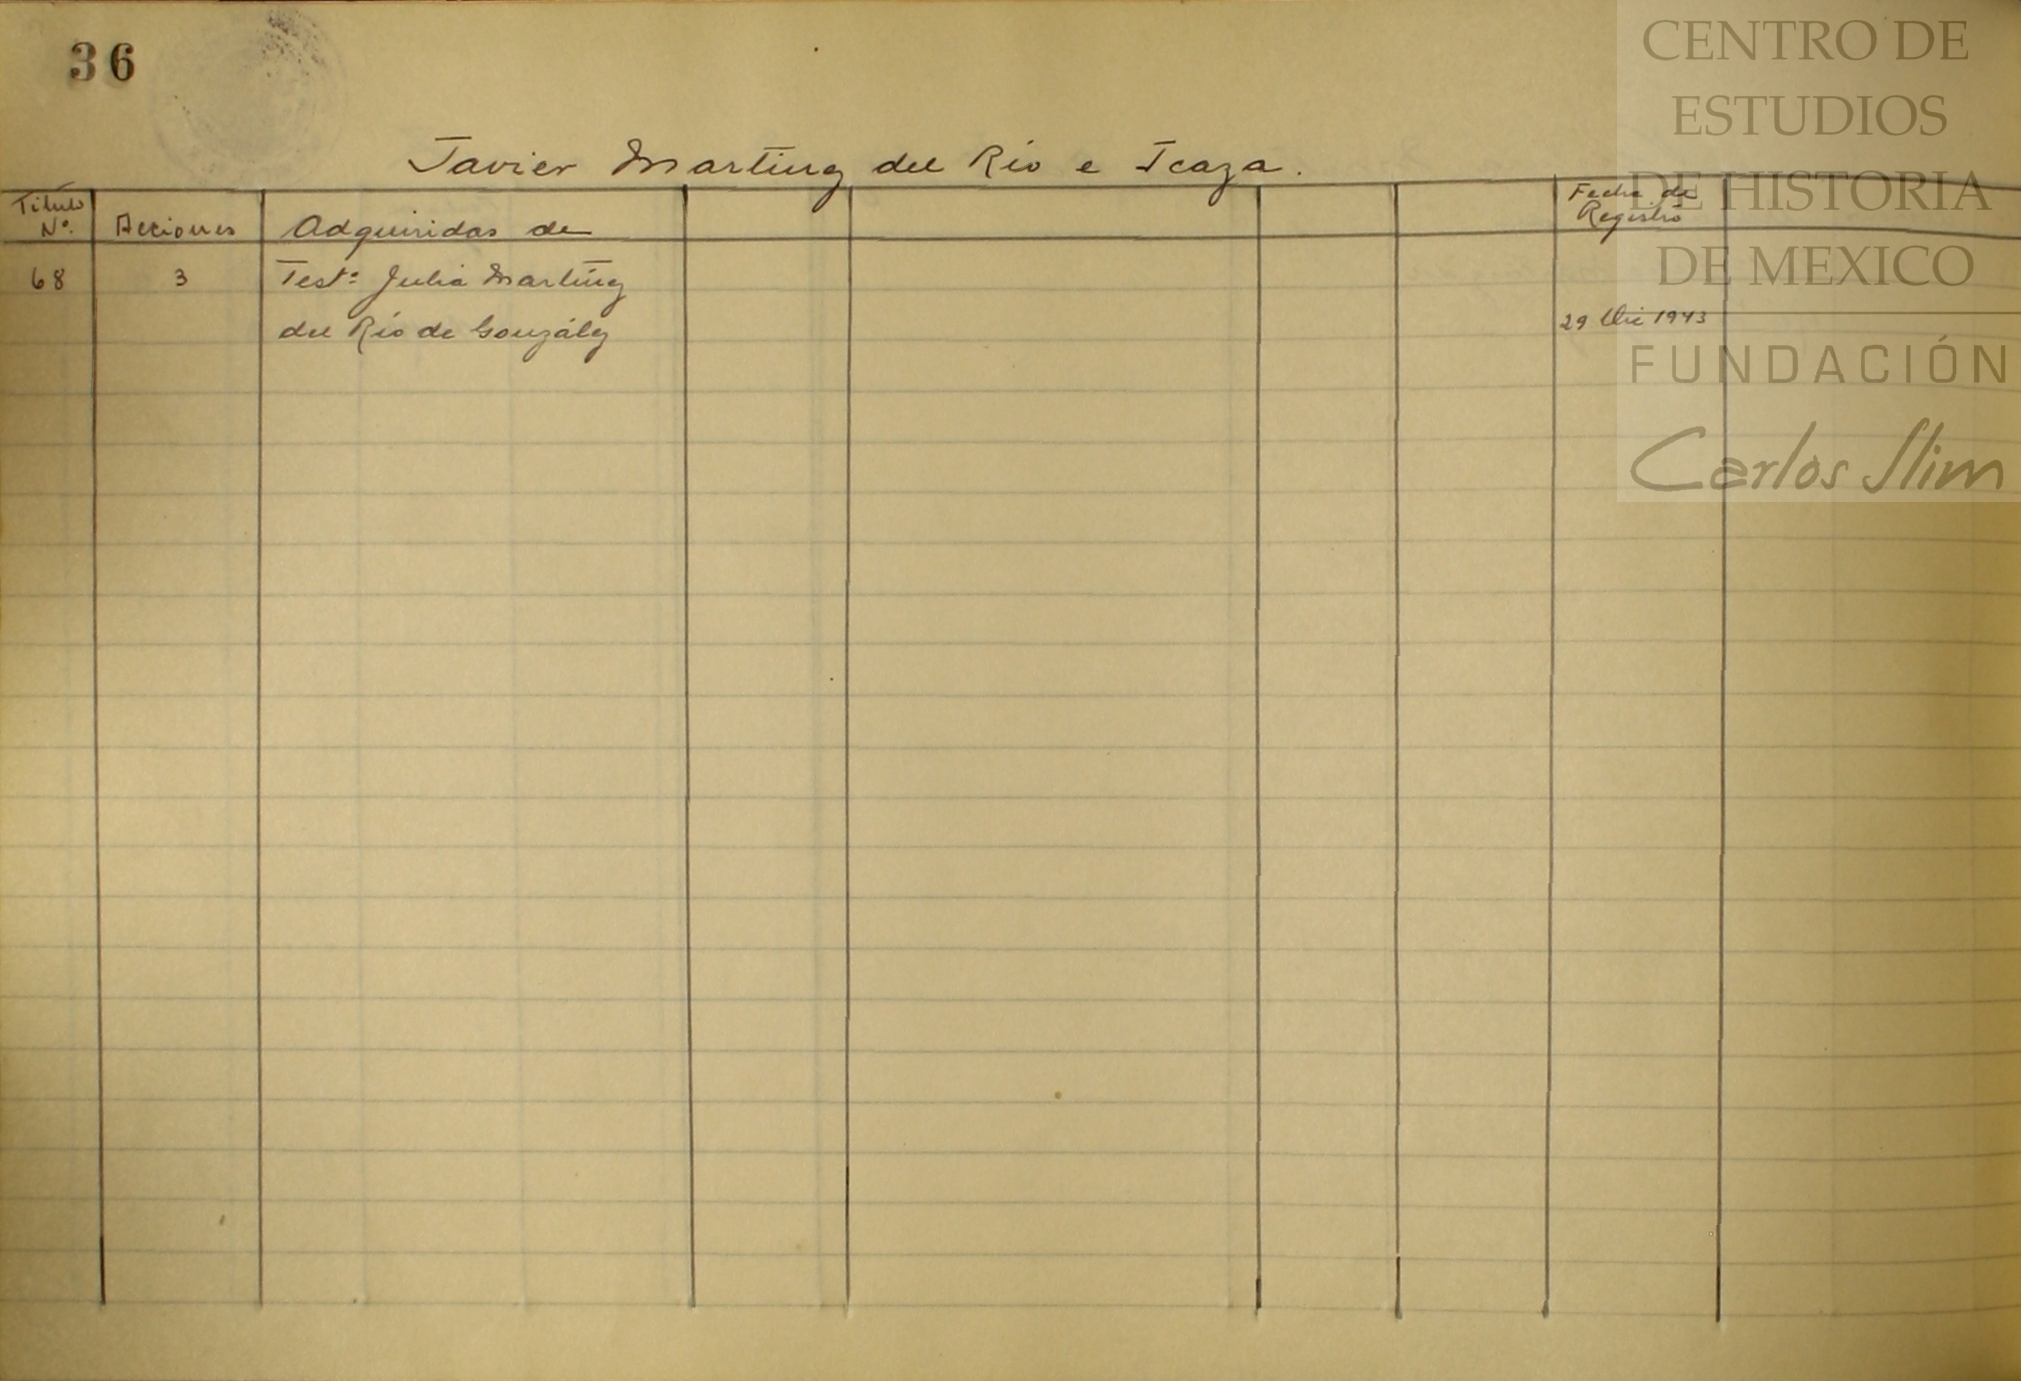 36
Javier Martínez del Río e Icaza.
Título Nº. Acciones Adquiridas de Fecha de Registro
68 3 Testª Julia Martínez
del Río de González 29 Dic 1943
CENTRO DE
ESTUDIOS
DE HISTORIA
DE MEXICO
FUNDACIÓN
Carlos Slim